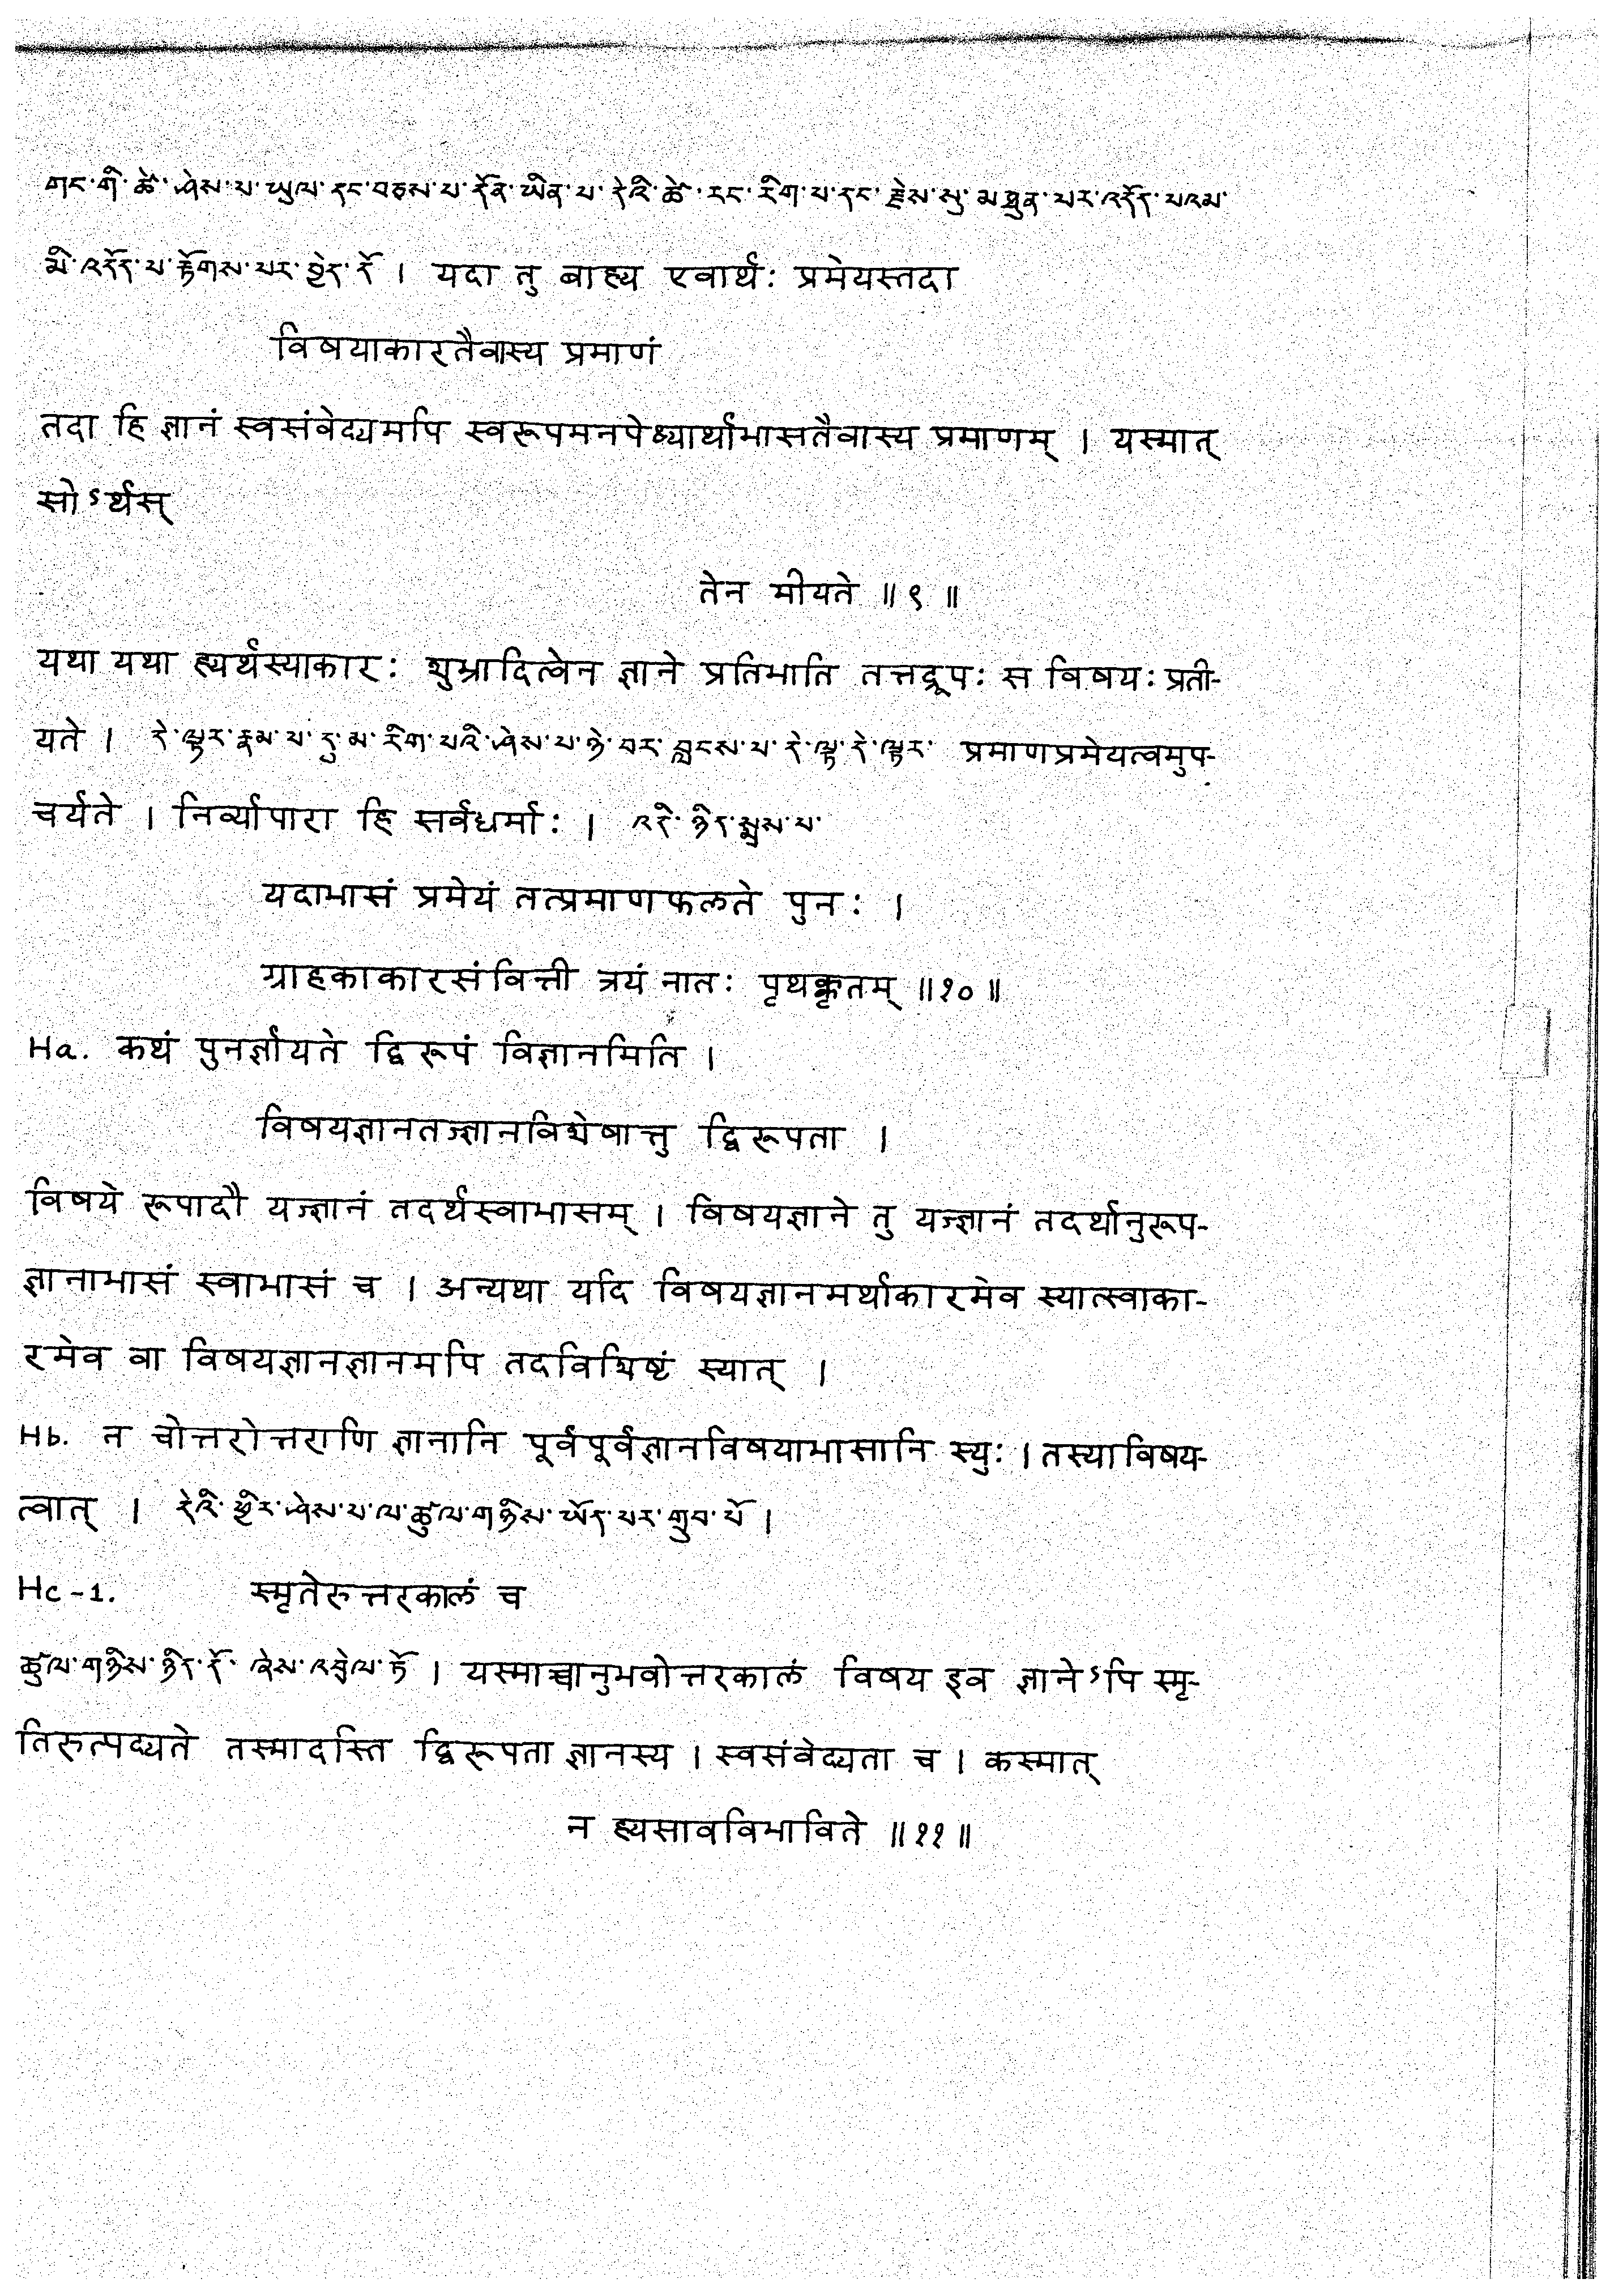 གང་གི་ཚེ་ཤེས་པ་ཡུལ་དང་བཅས་པ་དོན་ཡིན་པ་དེའི་ཚེ་རང་རིག་པ་དང་རྗེས་སུ་མཐུན་པར་འདོད་པའམ་
མི་འདོད་པ་རྟོགས་པར་བྱེད་དོ། यदा तु बाह्य एवार्थः प्रमेयस्तदा
विषयाकारतैवास्य प्रमाणं
तदा हि ज्ञानं स्वसंवेद्यमपि स्वरूपमनपेक्ष्यार्थाभासतैवास्य प्रमाणम् । यस्मात्
सोऽर्थस्
तेन मीयते ॥९॥
यथा यथा ह्यर्थस्याकारः शुभ्रादित्वेन ज्ञाने प्रतिभाति तत्तद्रूपः स विषयः प्रती-
यते । དེ་ལྟར་རྣམ་པ་དུ་མ་རིག་པའི་ཤེས་པ་ཉེ་བར་བླངས་པ་དེ་ལྟ་དེ་ལྟར་ प्रमाणप्रमेयत्वमुप-
चर्यते । निर्व्यापारा हि सर्वधर्माः । འདི་ཉིད་སྨྲས་པ་
यदाभासं प्रमेयं तत्प्रमाणफलते पुनः ।
ग्राहकाकारसंवित्ती त्रयं नातः पृथक्कृतम् ॥१०॥
Ha. कथं पुनर्ज्ञायते द्विरूपं विज्ञानमिति ।
विषयज्ञानतज्ज्ञानविशेषात्तु द्विरूपता ।
विषये रूपादौ यज्ज्ञानं तदर्थस्वाभासम् । विषयज्ञाने तु यज्ज्ञानं तदर्थानुरूप-
ज्ञानाभासं स्वाभासं च । अन्यथा यदि विषयज्ञानमर्थाकारमेव स्यात्स्वाका-
रमेव वा विषयज्ञानज्ञानमपि तदविशिष्टं स्यात् ।
Hb. न चोत्तरोत्तराणि ज्ञानानि पूर्वपूर्वज्ञानविषयाभासानि स्युः । तस्याविषय-
त्वात् । དེའི་ཕྱིར་ཤེས་པ་ལ་ཚུལ་གཉིས་ཡོད་པར་གྲུབ་པོ།
Hc-1. स्मृतेरुत्तरकालं च
ཚུལ་གཉིས་ཉིད་དོ་ཞེས་འབྲེལ་ཏོ། यस्माच्चानुभवोत्तरकालं विषय इव ज्ञानेऽपि स्मृ-
तिरुत्पद्यते तस्मादस्ति द्विरूपता ज्ञानस्य । स्वसंवेद्यता च । कस्मात्
न ह्यसावविभाविते ॥११॥